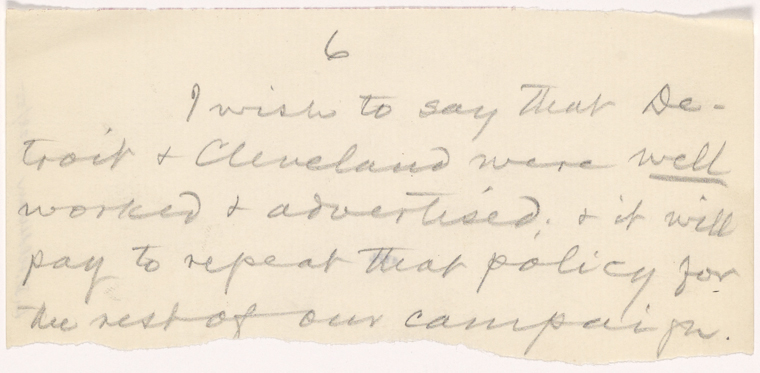 6
I wish to say that De-
troit & Cleveland were well
worked & advertised; & it will
pay to repeat that policy for
the rest of our campaign.